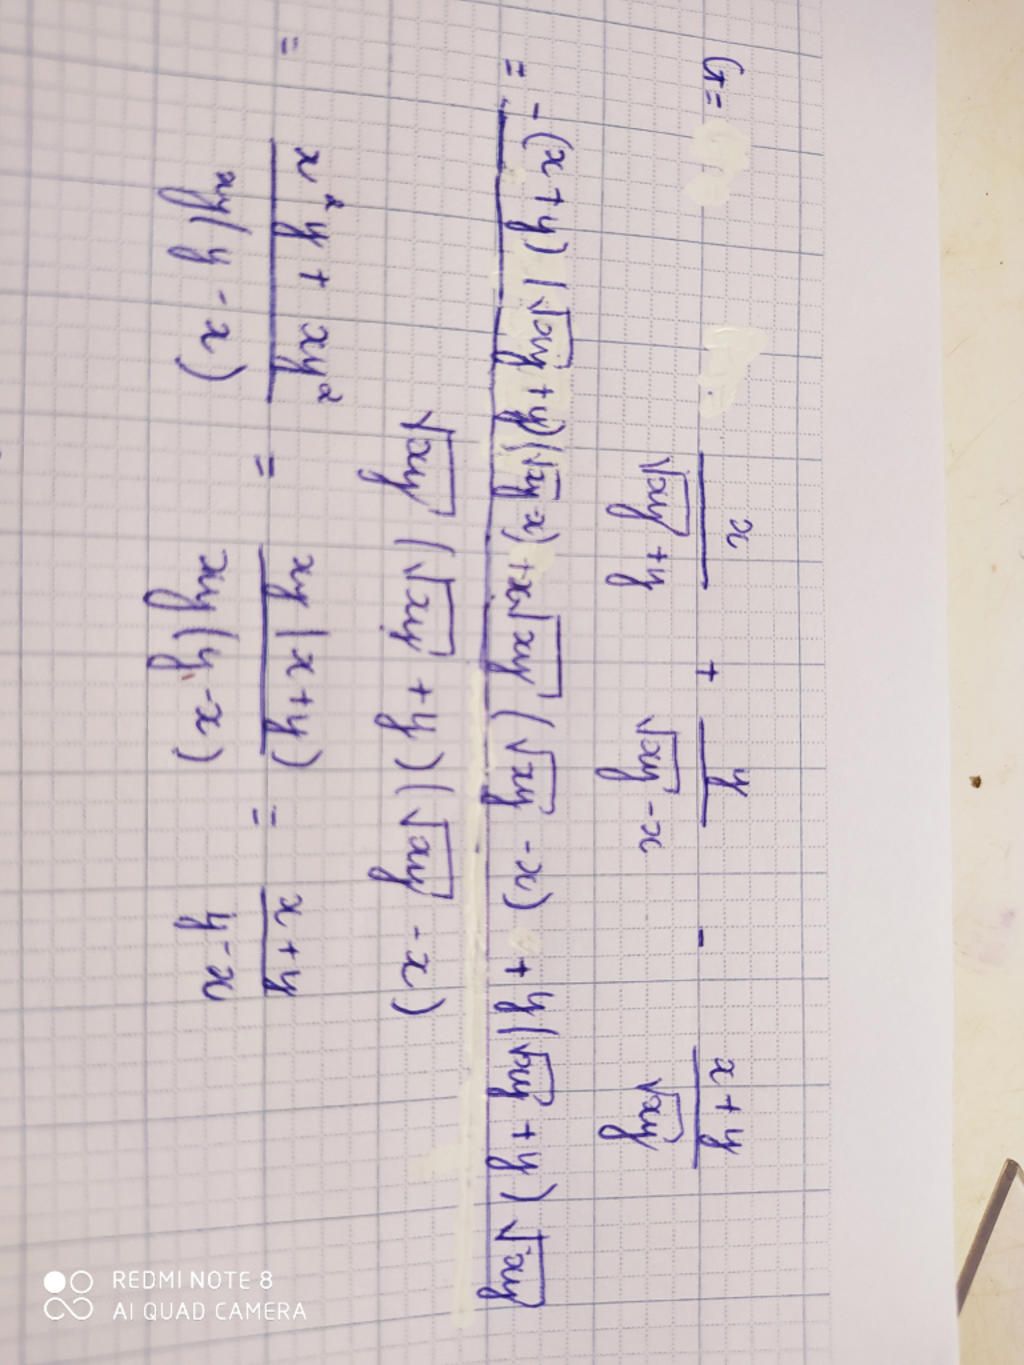 G = x/(√xy + y) + y/(√xy - x) - (x + y)/√xy
= -(x + y)(√xy + y)(√xy - x) + x√xy(√xy - x) + y(√xy + y)√xy
√xy(√xy + y)(√xy - x)
= (x²y + xy²)/(xy(y - x)) = xy(x + y)/(xy(y - x)) = (x + y)/(y - x)
REDMI NOTE 8
AI QUAD CAMERA